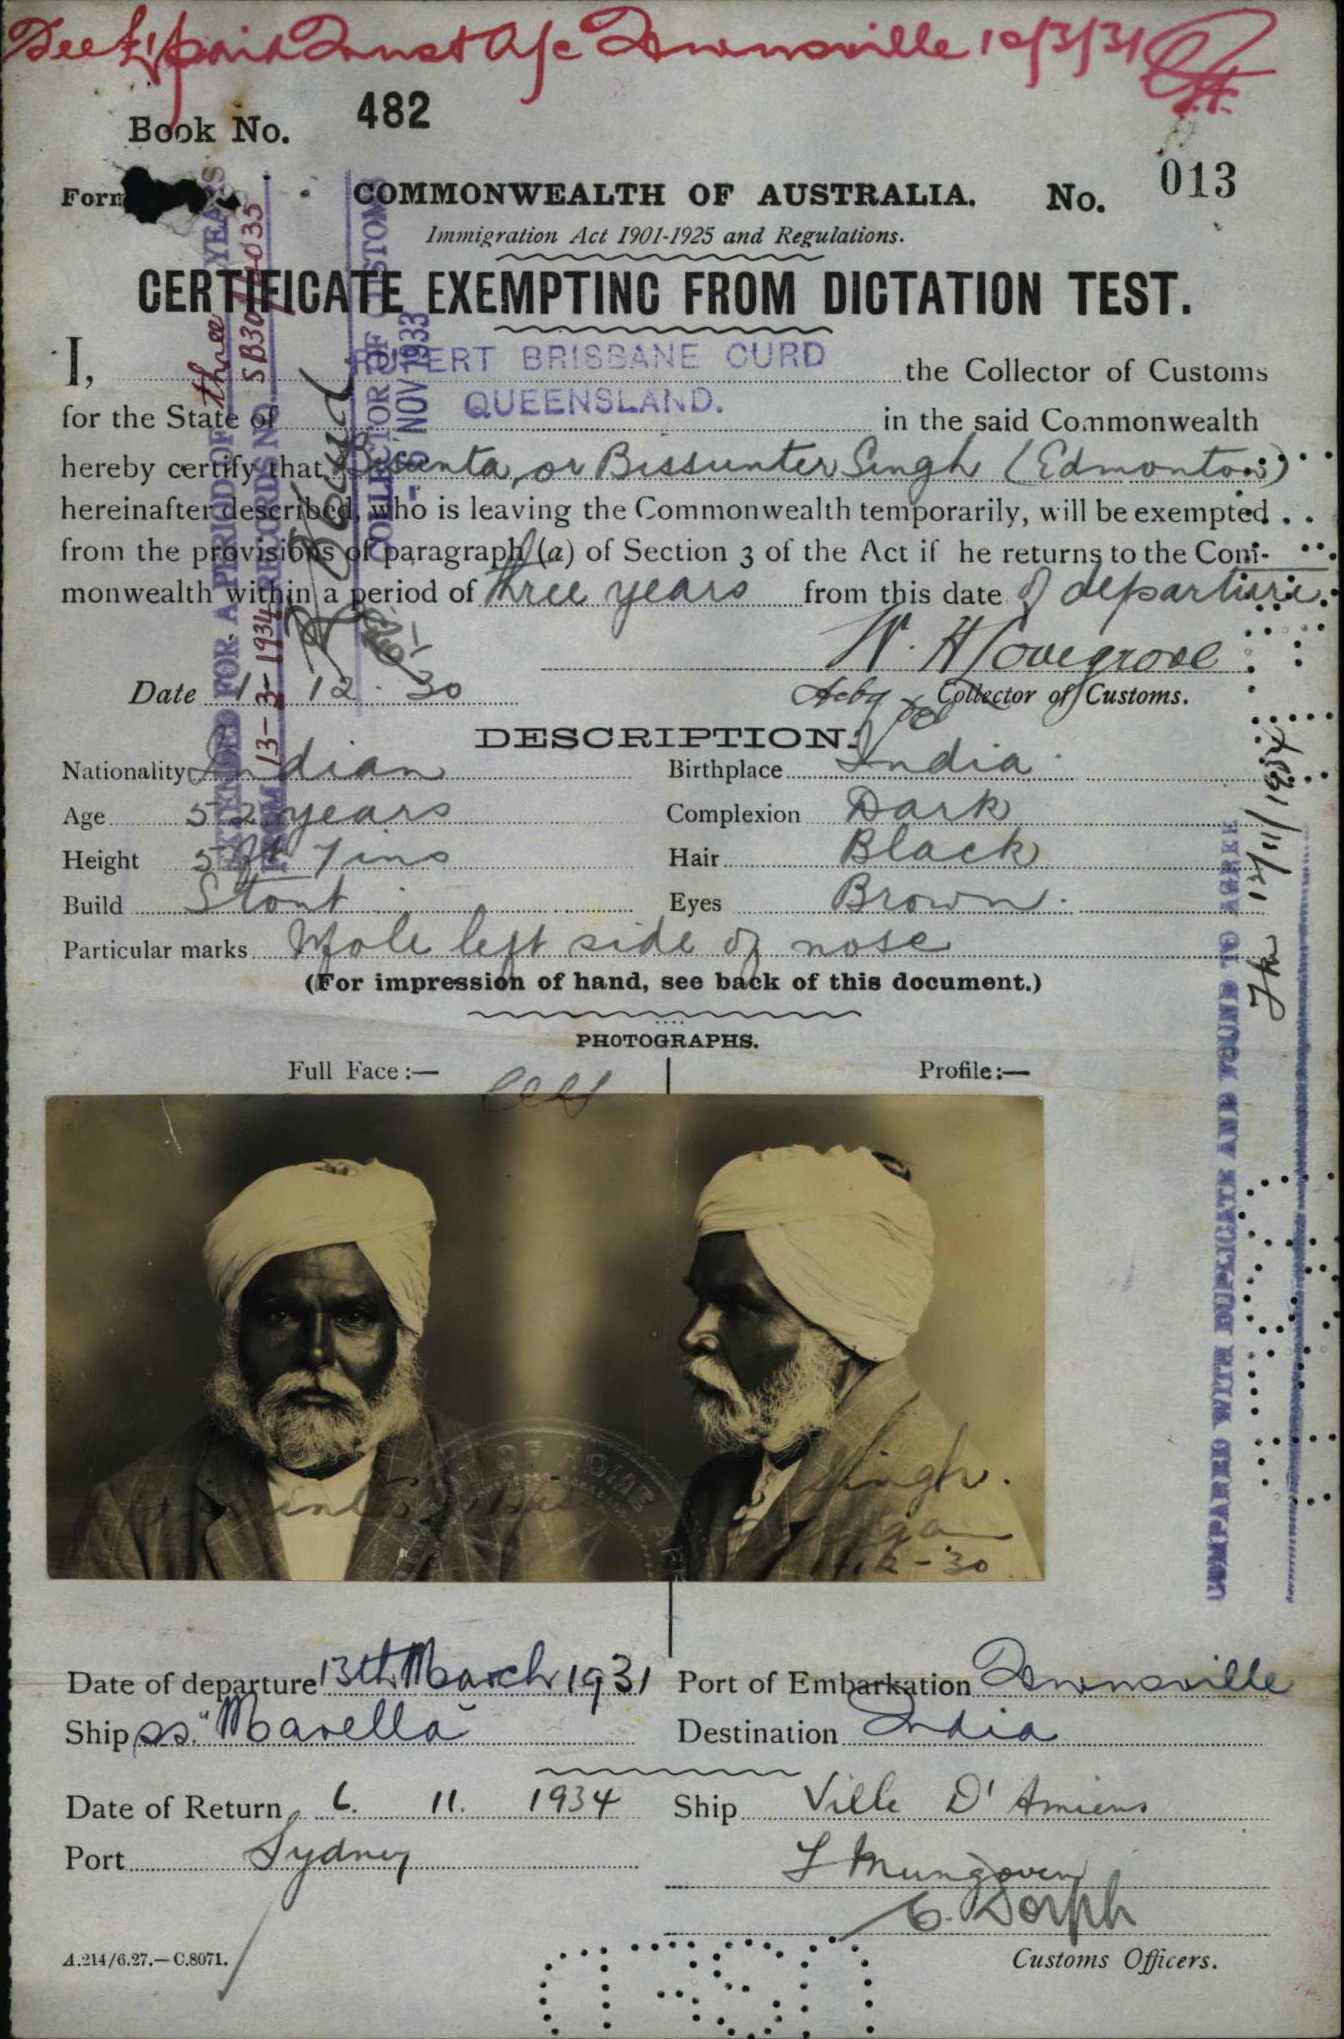 Fee £1 paid Trust A/c Townsville 10/3/31
Book No. 482
Form
COMMONWEALTH OF AUSTRALIA. No. 013
Immigration Act 1901-1925 and Regulations.
CERTIFICATE EXEMPTING FROM DICTATION TEST.
I, RUPERT BRISBANE CURD the Collector of Customs
for the State of QUEENSLAND. in the said Commonwealth
hereby certify that Bisunta, or Bissunter Singh (Edmonton)
hereinafter described, who is leaving the Commonwealth temporarily, will be exempted
from the provisions of paragraph (a) of Section 3 of the Act if he returns to the Com-
monwealth within a period of three years from this date of departure.
W. H Lovegrove
Date 1. 12. 30 Actg Collector of Customs.
EXTENDED FOR A PERIOD OF three YEARS
FROM 13-3-1934 RECORDS NO. SB30/14035
COLLECTOR OF CUSTOMS
NOV 1933
DESCRIPTION.
Nationality Indian Birthplace India
Age 52 years Complexion Dark
Height 5 ft 7 ins Hair Black
Build Stout Eyes Brown.
Particular marks Mole left side of nose
(For impression of hand, see back of this document.)
PHOTOGRAPHS.
Full Face :— Profile :—
COMPARED WITH DUPLICATE AND FOUND TO AGREE
12/11/1934
OF HOME
Singh.
1.12-30
Date of departure 13th March 1931 Port of Embarkation Townsville
Ship ss. "Marella" Destination India
Date of Return 6. 11. 1934 Ship Ville D'Amiens
Port Sydney
L Mungoven
C. Dorph
A.214/6.27.—C.8071. Customs Officers.